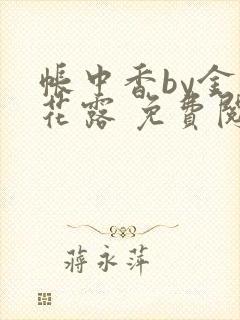 帳中香by金
花露 免費閱
蔣永萍